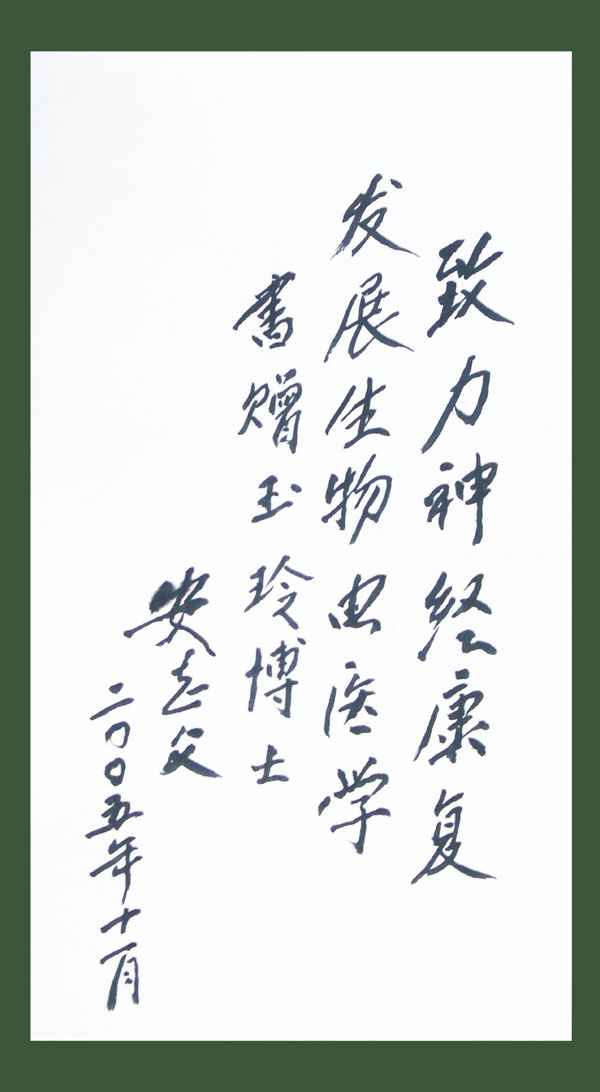 致力神经康复
发展生物电医学
書赠玉玲博士
安志文
二〇〇五年十一月